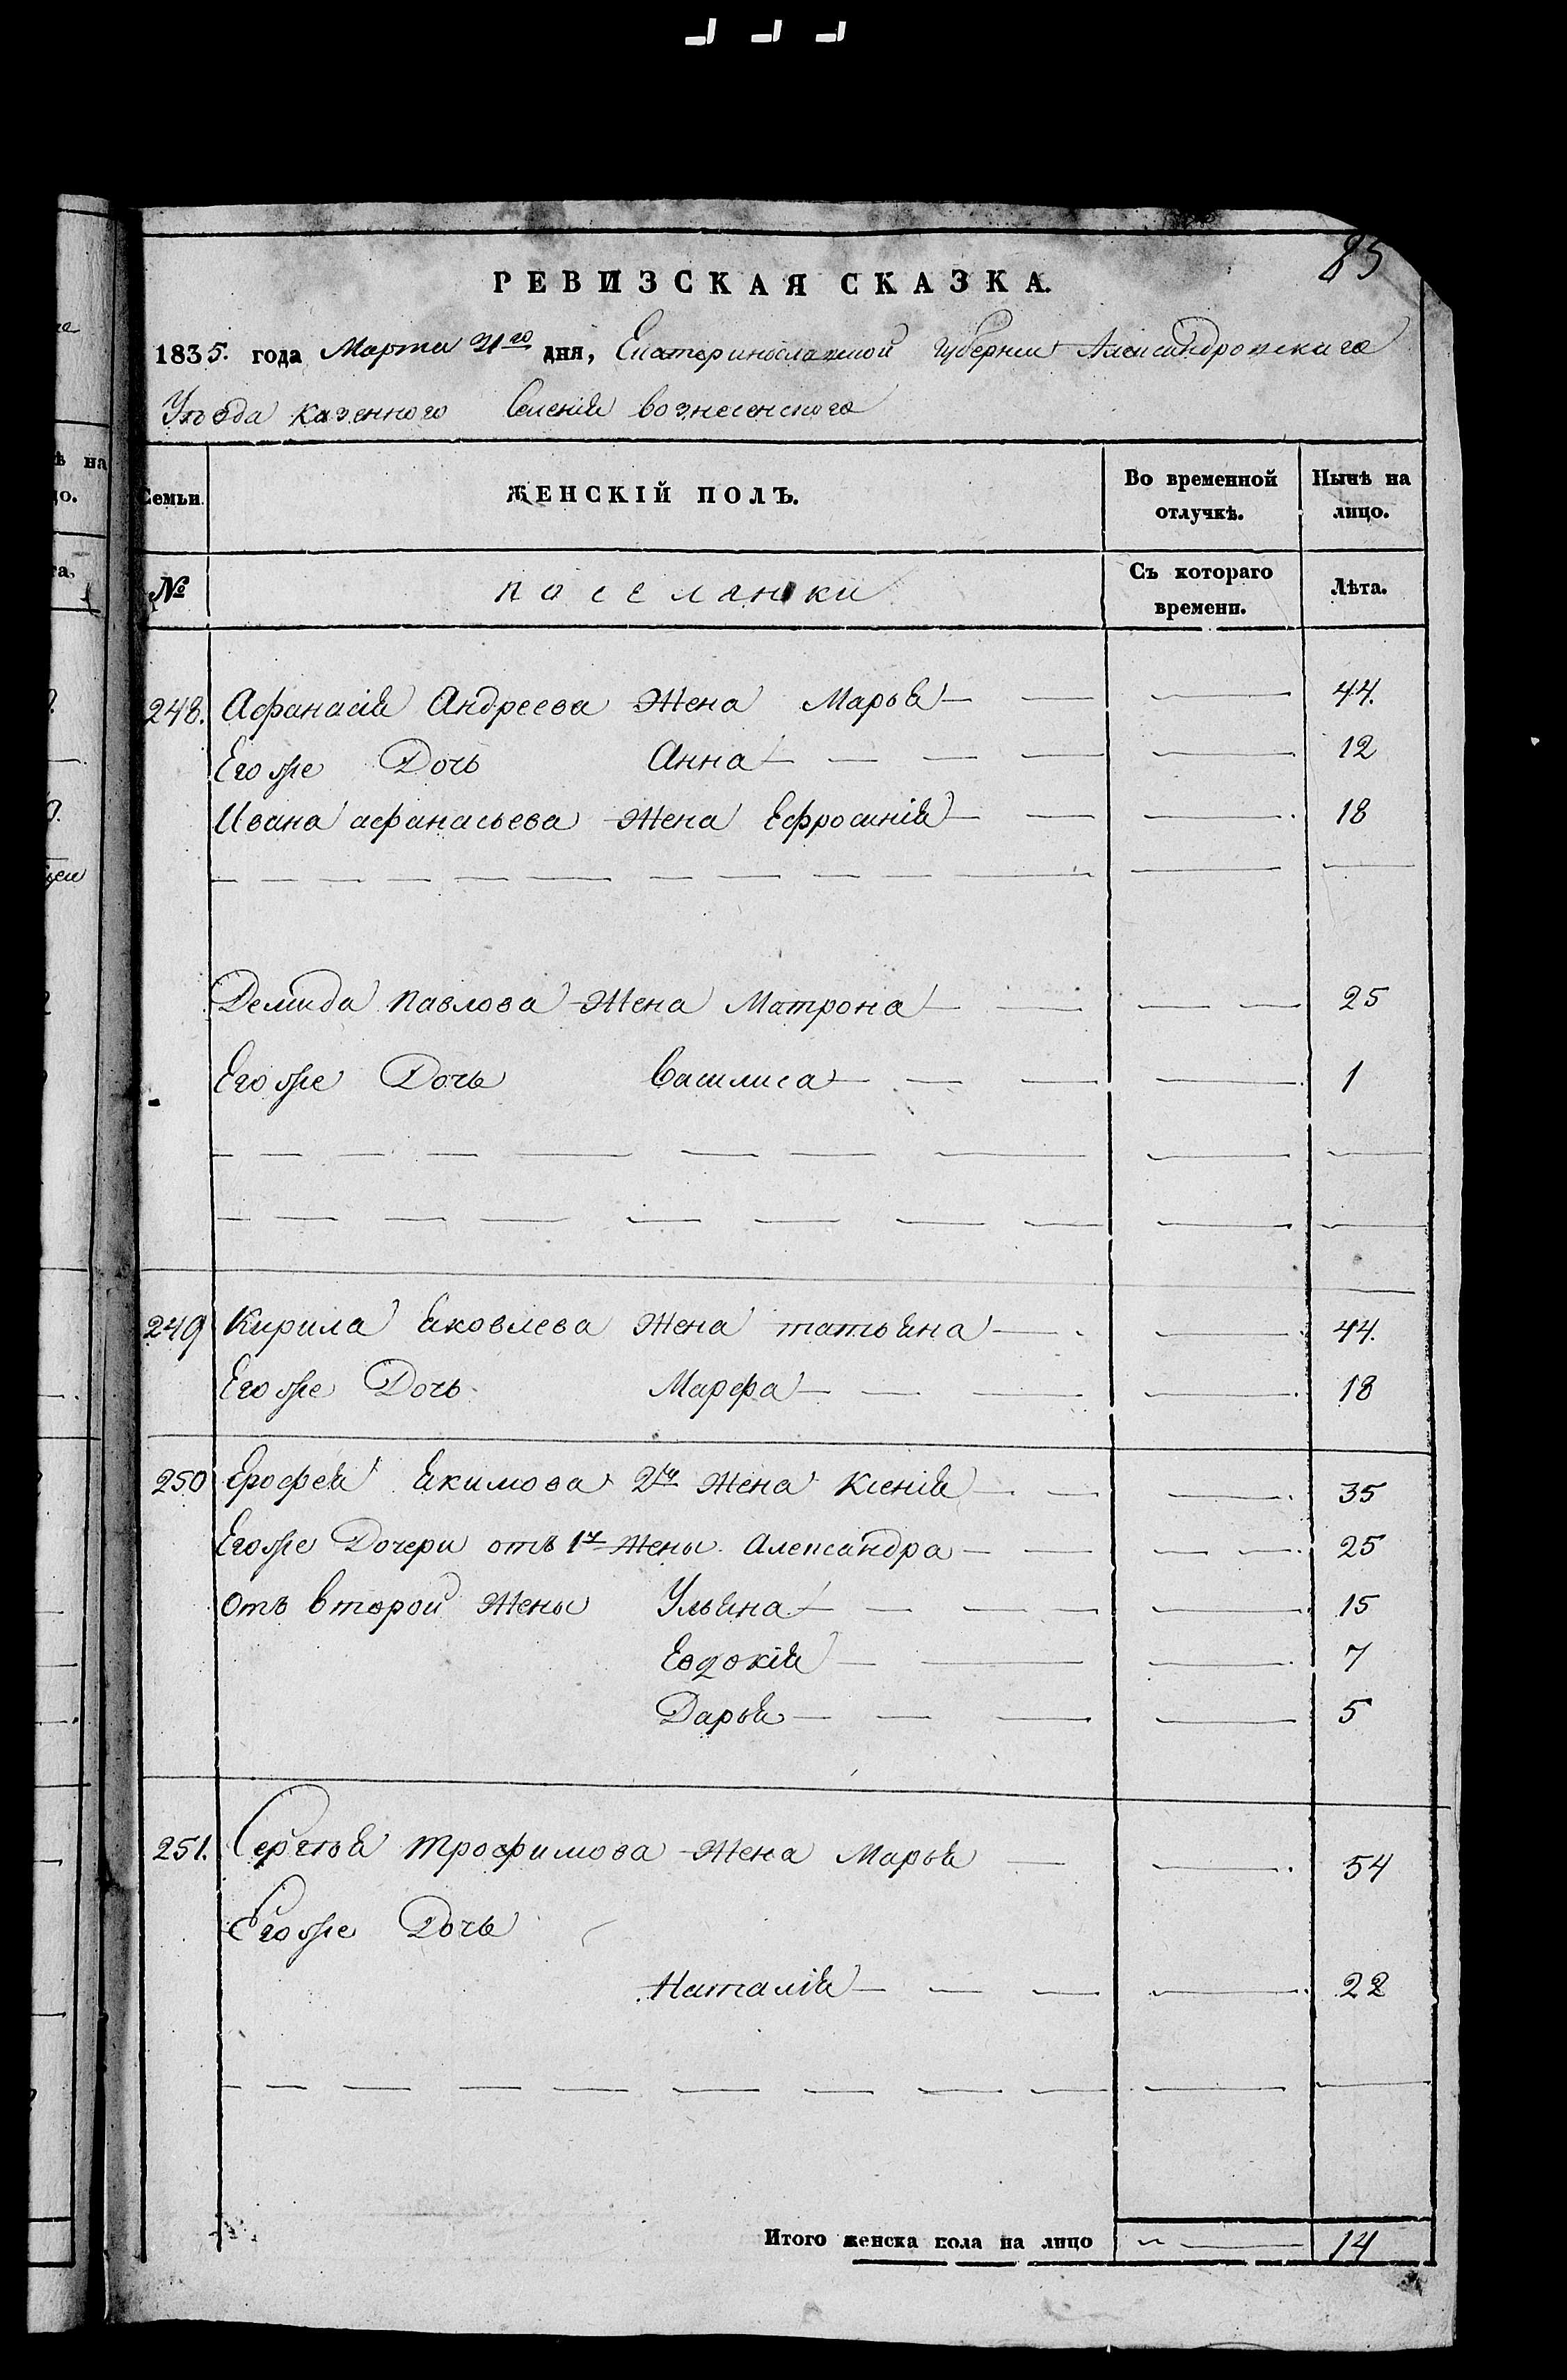 85
РЕВИЗСКАЯ СКАЗКА.
1835. года Марта 31го дня, Екатеринославской Губернии Александровскаго
Уѣзда казенного Селенія вознесенского
Семьи. ЖЕНСКІЙ ПОЛЪ. Во временной отлучкѣ. Нынѣ на лицо.
№ поселянки Съ котораго времени. Лѣта.
248. Афанасія Андреева Жена Марья 44.
Егоже Дочь Анна 12
Ивана афанасьева Жена Ефросинія 18
Демида павлова Жена Матрона 25
Егоже Дочь Василиса 1
249 Кирила Яковлева Жена татьяна 44.
Егоже Дочь Марфа 18
250 Ерофея Якимова 2я Жена Ксенія 35
Егоже Дочери отъ 1й Жены Александра 25
отъ второй Жены Ульяна 15
Евдокія 7
Дарья 5
251. Сергѣя трофимова Жена Марья 54
Егоже Дочь
Наталія 22
Итого женска пола на лицо 14